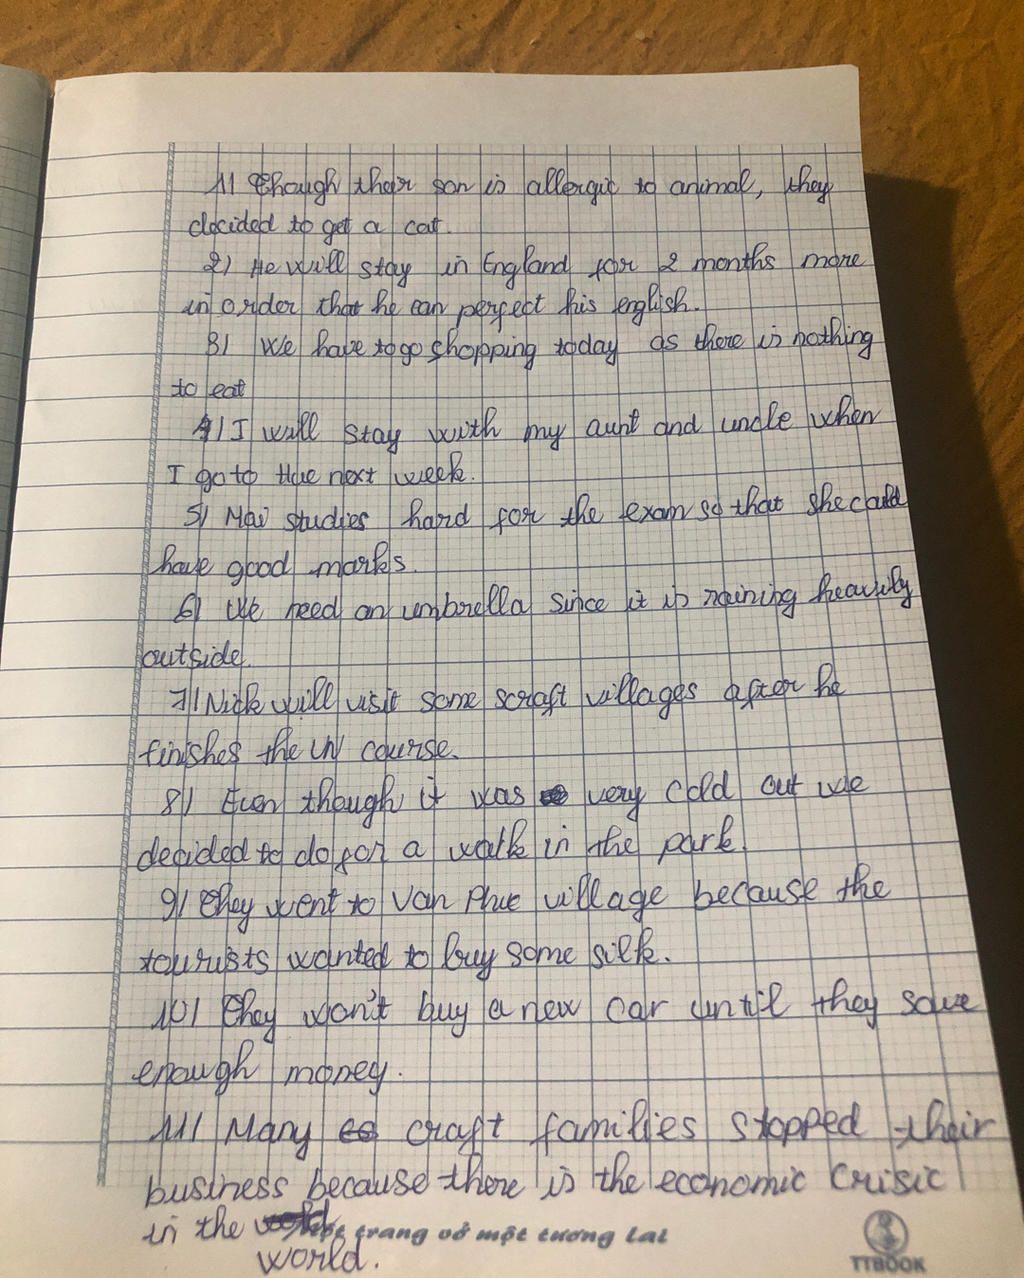 1) Though their son is allergic to animal, they
decided to get a cat.
2) He will stay in England for 2 months more
in order that he can perfect his english.
3) We have to go shopping today as there is nothing
to eat
4) I will stay with my aunt and uncle when
I go to Hue next week.
5) Mai studies hard for the exam so that she could
have good marks.
6) We need an umbrella since it is raining heavily
outside.
7) Nick will visit some scraft villages after he
finishes the UV course.
8) Even though it was very cold out we
decided to do for a walk in the park.
9) They went to Van Phuc village because the
tourists wanted to buy some silk.
10) They won't buy a new car until they save
enough money.
11) Many craft families stopped their
business because there is the economic crisic
in the
một trang vở một tương lai
world.
TTBOOK